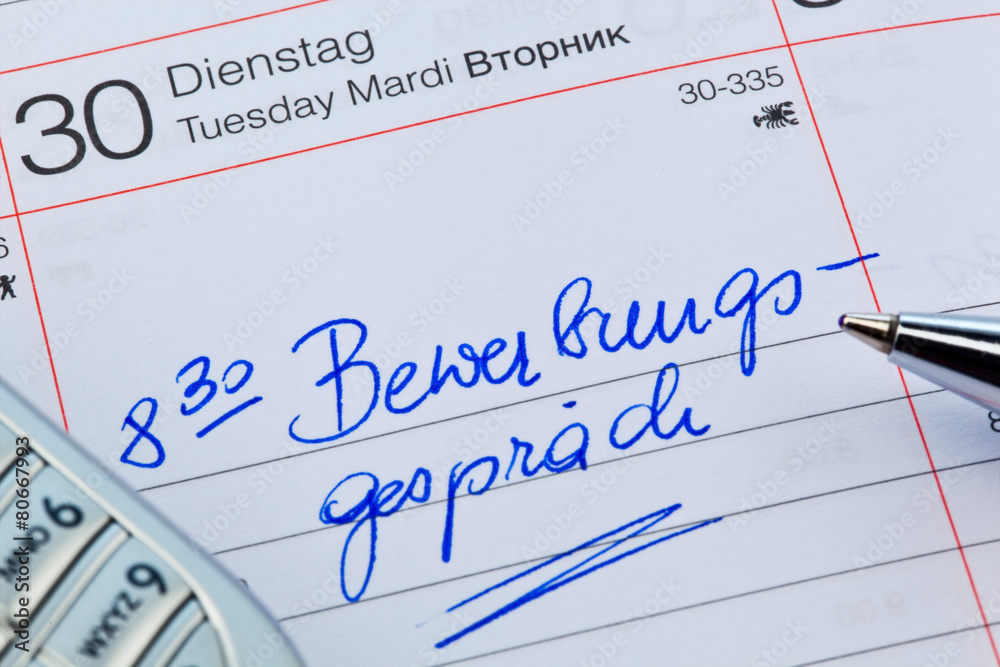 30 Dienstag
Tuesday Mardi Вторник
30-335
6
8 30 Bewerbungs-
gespräch
6
WXYZ 9
8
Adobe Stock | #80667993